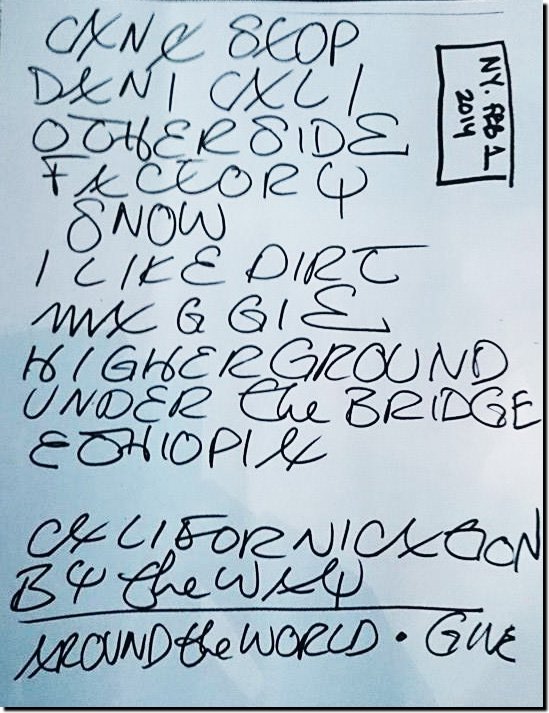 CAN'T STOP
DANI CALI
OTHERSIDE
FACTORY
SNOW
I LIKE DIRT
MAGGIE
HIGHERGROUND
UNDER the BRIDGE
ETHIOPIA
CALIFORNICATION
BY the WAY
AROUND the WORLD • GIVE
NY. FEB 1
2014